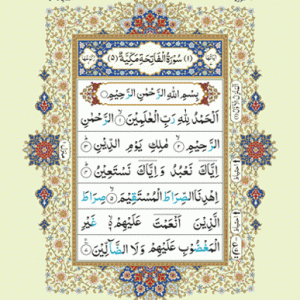 (١) سُورَةُ الْفَاتِحَةِ مَكِّيَّةٌ (٥)
بِسْمِ اللهِ الرَّحْمٰنِ الرَّحِيْمِ
اَلْحَمْدُ لِلّٰهِ رَبِّ الْعٰلَمِيْنَ الرَّحْمٰنِ
الرَّحِيْمِ مٰلِكِ يَوْمِ الدِّيْنِ
اِيَّاكَ نَعْبُدُ وَ اِيَّاكَ نَسْتَعِيْنُ
اِهْدِنَا الصِّرَاطَ الْمُسْتَقِيْمَ صِرَاطَ
الَّذِيْنَ اَنْعَمْتَ عَلَيْهِمْ غَيْرِ
الْمَغْضُوْبِ عَلَيْهِمْ وَ لَا الضَّآلِّيْنَ